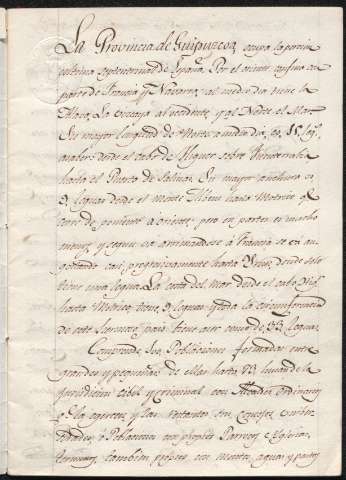 La Provincia de Guipuzcoa, ocupa la parte
septentrional de España. Por el oriente confina con
parte de Francia y Navarra; al medio dia tiene la
Alava, la Vizcaya al occidente, y al Norte el Mar.
Su mayor longitud de Norte a medio dia, es, 15 leg.
desde el cabo de Higuer sobre Fuenterrabia
hasta el Puerto de Salinas. Su mayor anchura es
9. leguas desde el monte hasta Motrico q.
corre de poniente a oriente; pero en partes es mucho
menos, y segun va arrimandose à Francia se vá an
gostando casi progresivamente hasta Yrun, donde solo
tiene una legua. La costa del Mar desde el cabo Hig.
hasta Motrico, tiene 9. leguas y toda la circunferencia
de este hermoso pais tiene como de 33 leguas.
Comprende Poblaciones formadas entre
grandes y pequeñas de ellas hasta 73, la
jurisdiccion cibil y criminal con Alcaldes Ordinarios
q.e la egercen, y las restantes son
ò Poblacion con propias Parroq.s è Yglesias
terminos tambien propios en montes, aguas y pastos